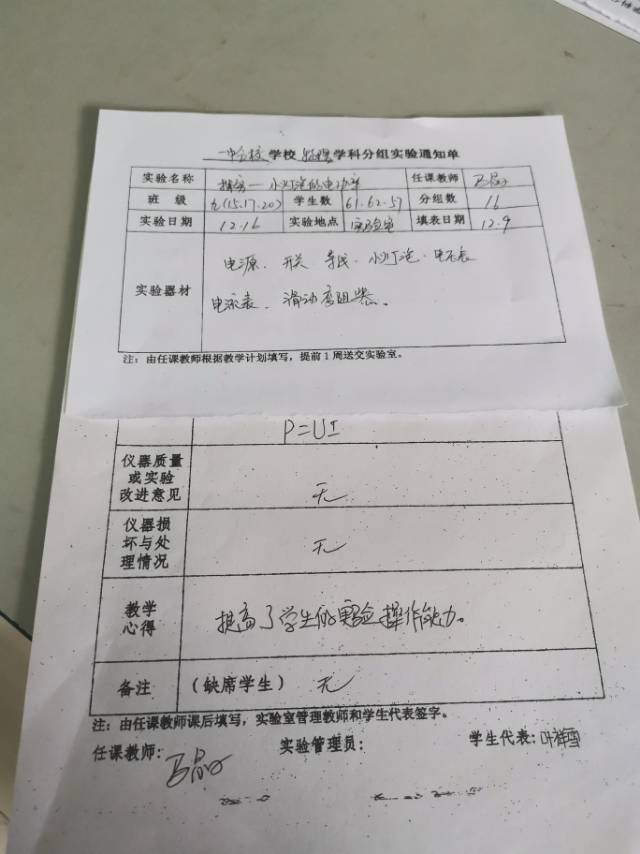 学校物理学科分组实验通知单
实验名称 探究一小灯泡的电功率 任课教师
班级 九(15.17.20) 学生数 61.62.57 分组数 16
实验日期 12.16 实验地点 实验室 填表日期 12.9
电源、开关 导线、小灯泡、电压表
实验器材
电流表、滑动变阻器。
注：由任课教师根据教学计划填写，提前1周送交实验室。
P=UI
仪器质量
或实验
改进意见 无
仪器损
坏与处
理情况 无
教学
心得 提高了学生的实验操作能力。
备注 （缺席学生） 无
注：由任课教师课后填写，实验室管理教师和学生代表签字。
任课教师： 实验管理员： 学生代表：